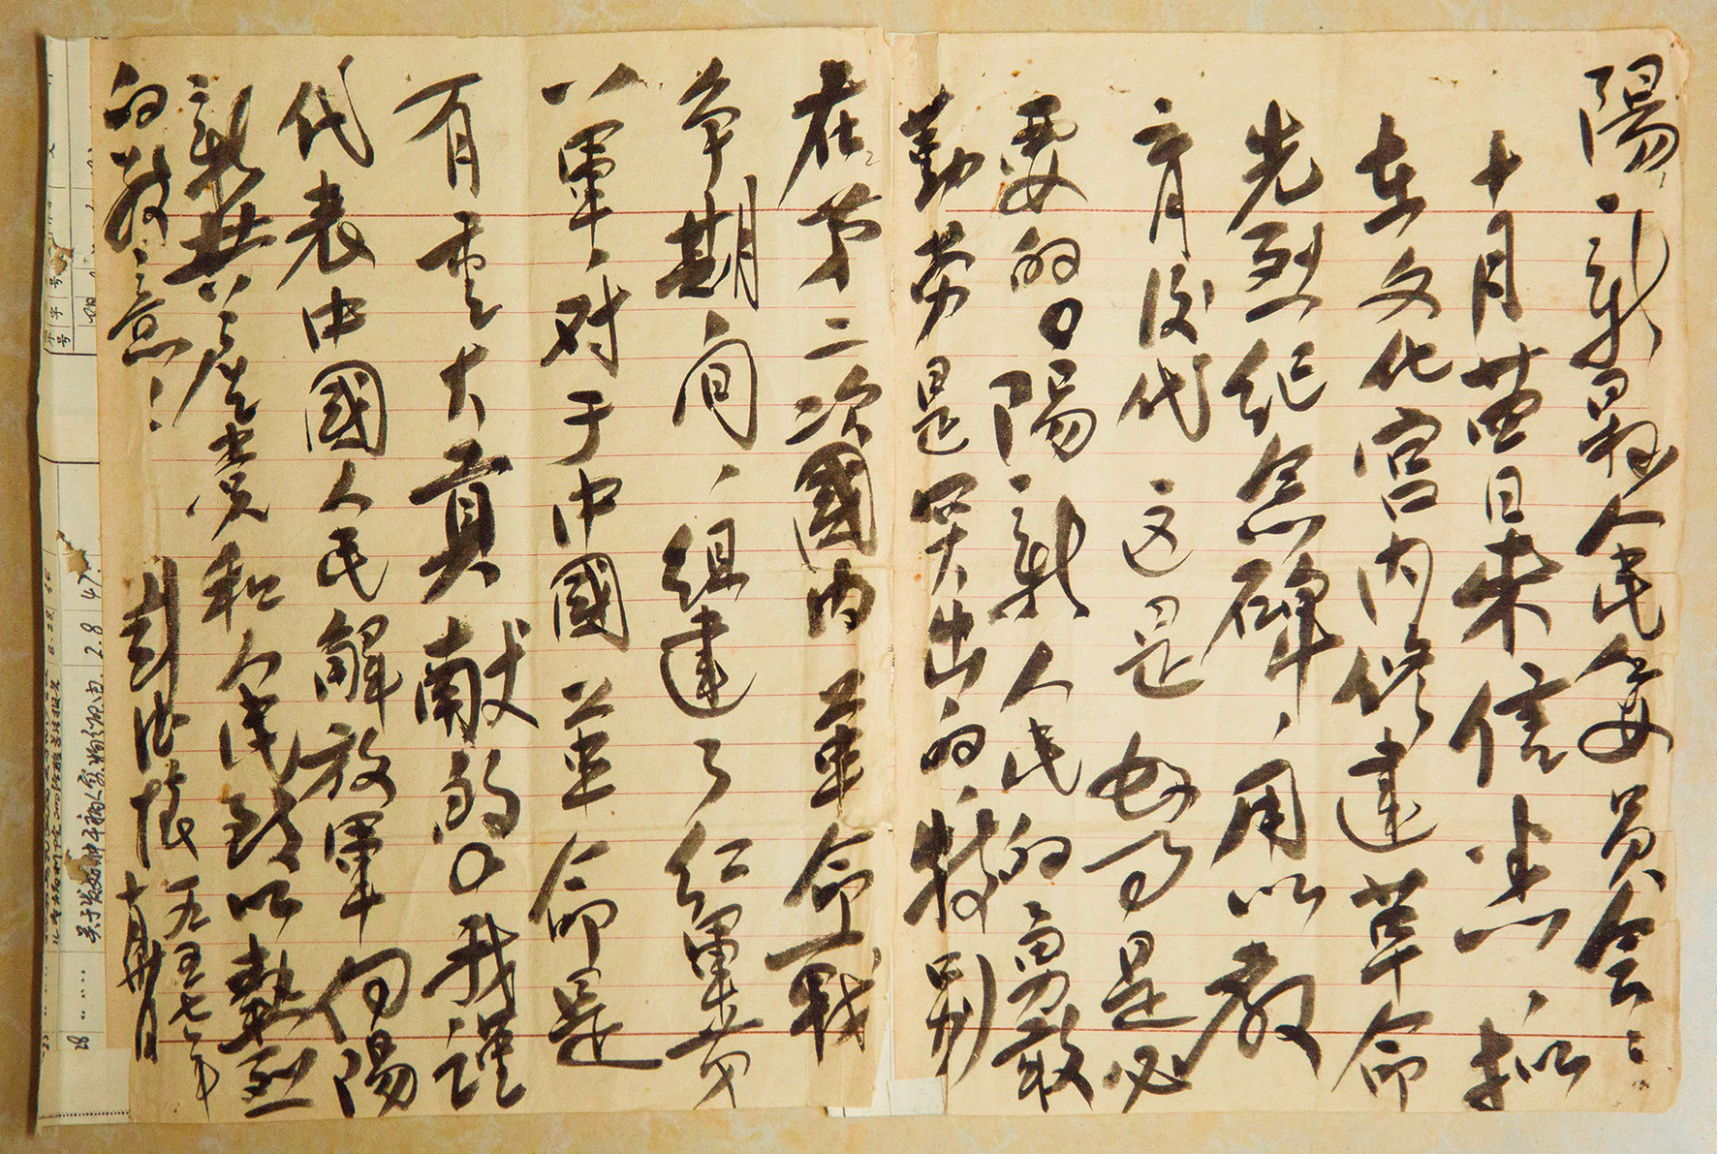 陽新县人民委員会：
十月廿日来信悉，拟
在文化宫内修建革命
先烈纪念碑，用以教
育后代 这是好事是必
要的。陽新人民的勇敢
勤劳是突出的，特别
在第二次國内革命战
争期间，组建了红軍第
八軍，对于中國革命是
有重大貢献的。我谨
代表中國人民解放軍向陽
新共产党和人民致以热烈
的敬意！
一九五七年
十月卅日
关于
2.8
47.
28
字号